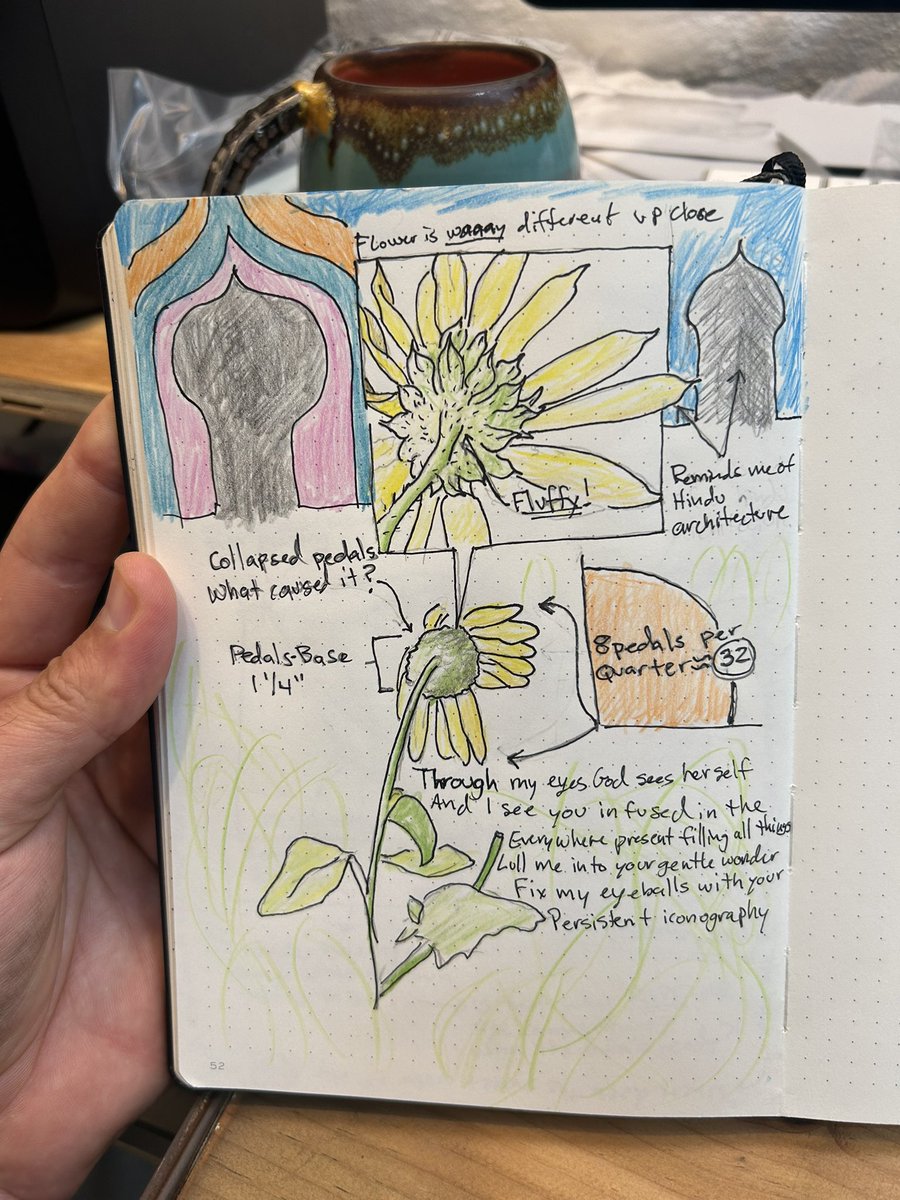 Flower is waaay different up close
Fluffy!
Reminds me of
Hindu
architecture
Collapsed pedals
What caused it?
Pedals-Base
1 1/4"
8 pedals per
Quarter ≈ 32
Through my eyes God sees herself
And I see you infused in the
Everywhere present filling all things
Lull me into your gentle wonder
Fix my eyeballs with your
Persistent iconography
52